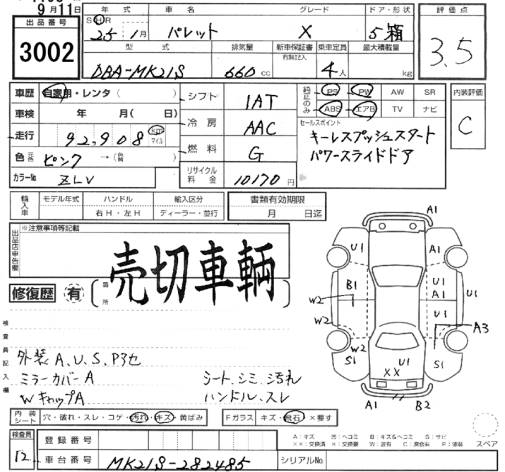 9月11日
出品番号
3002
年式 車名 グレード ドア・形状
S H R
25年 1月 パレット X 5箱
型式 排気量 新車保証書 有無記入 乗車定員 最大積載量
DBA-MK21S 660cc 4人 kg
評価点
3.5
車歴 自家用・レンタ( )
車検 年 月( 日)
走行 92,908 km マイル
色 元色 ピンク →( 替 )
カラーNo ZLV
シフト IAT
冷房 AAC
燃料 G
リサイクル料金 10170円
純正のみ PS PW AW SR
ABS エアB TV ナビ
セールスポイント
キーレスプッシュスタート
パワースライドドア
内装評価
C
輸入車 モデル年式 ハンドル 輸入区分
右H・左H ディーラー・並行
書類有効期限
月 日迄
出品店申告欄
※注意事項等記載
売切車輌
修復歴 有 箇所
検査員記入欄
外装 A、U、S、Pヨセ
ミラーカバーA
WキャップA
シート、シミ、汚れ
ハンドル、スレ
内装シート 穴・破れ・スレ・コゲ・汚れ・キズ・黄ばみ
Fガラス キズ・飛石・×要す
A1
U1 U1
B1 U1 A1 U1
W2
W2 W2 U1 A3
S1 U1 S1
XX
A1 B2
スペア
検査員
12
登録番号
車台番号 MK21S-282485
シリアルNo